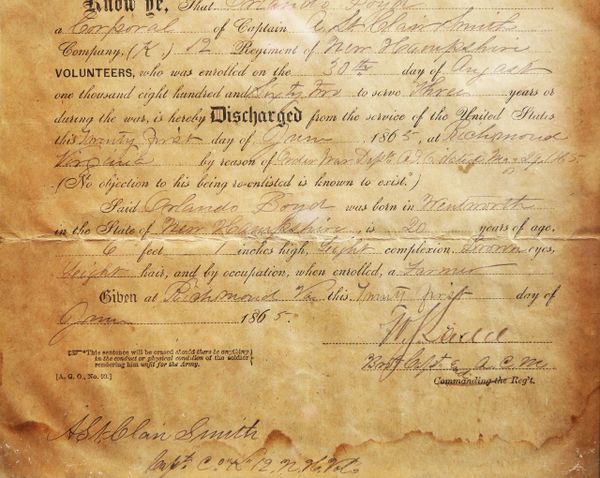 Know ye, That Orlando Boyd
a Corporal of Captain A St. Clair Smith
Company, (K,) 12 Regiment of New Hampshire
VOLUNTEERS, who was enrolled on the 30th day of August
one thousand eight hundred and Sixty Two to serve Three years or
during the war, is hereby Discharged from the service of the United States
this Twenty first day of June 1865, at Richmond
Virginia by reason of Order War Dept. A.G.O.
(No objection to his being re-enlisted is known to exist.*)
Said Orlando Boyd was born in Wentworth
in the State of New Hampshire, is 20 years of age,
6 feet 1 inches high, Light complexion, Brown eyes,
Light hair, and by occupation, when enrolled, a Farmer
Given at Richmond Va this Twenty first day of
June 1865.
*This sentence will be erased should there be anything
in the conduct or physical condition of the soldier
rendering him unfit for the Army.
[A. G. O., No. 99.]
Capt & A. C. M.
Commanding the Reg't.
A St. Clair Smith
Capt. Co. K 12 N. H. Vols